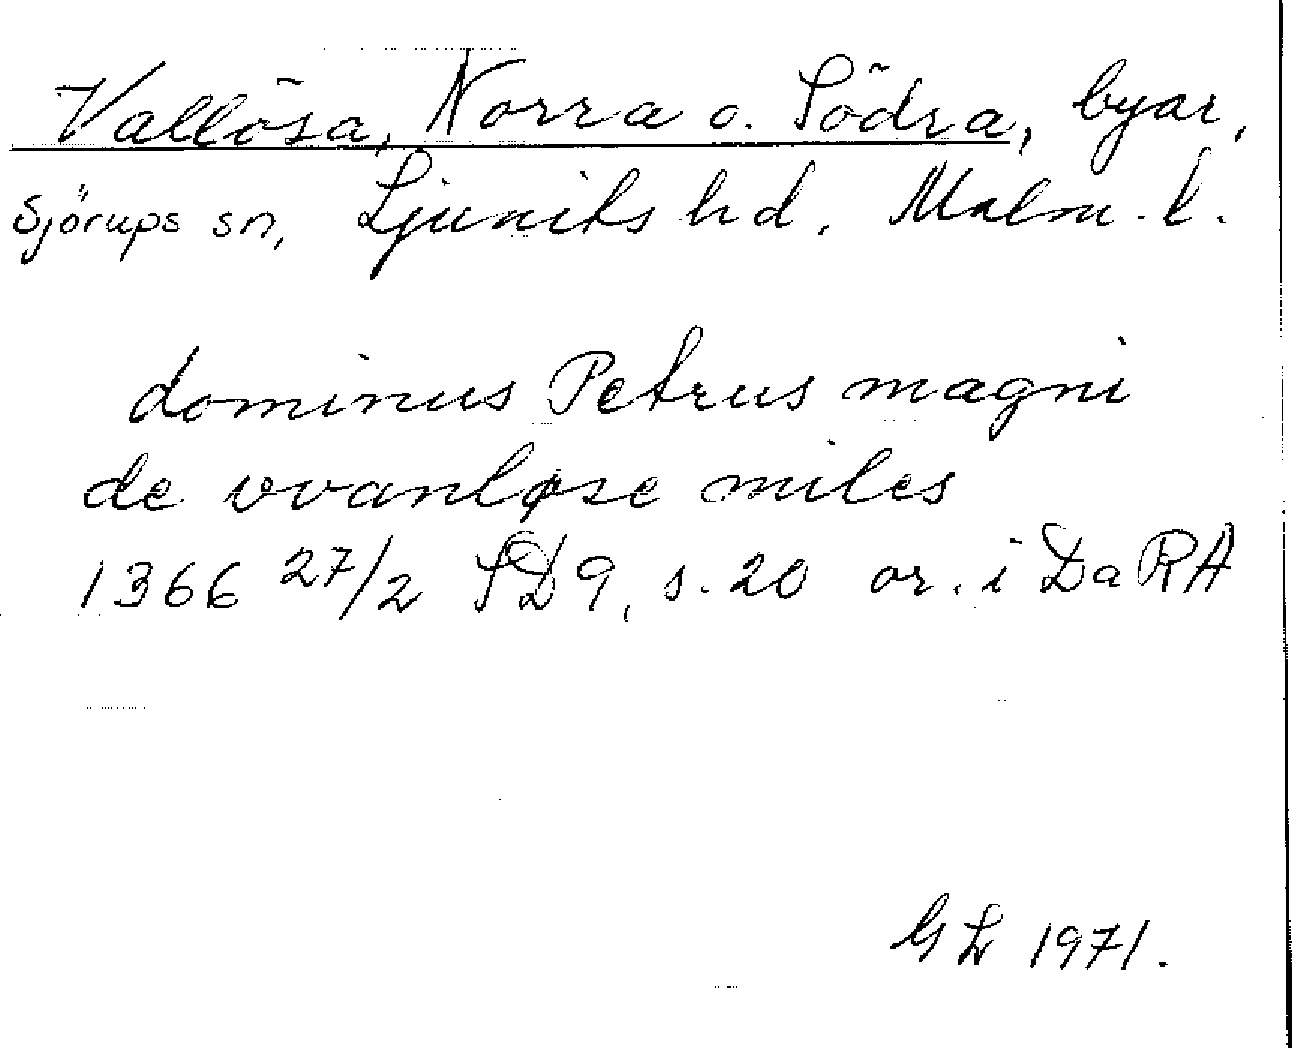 Vallösa, Norra o. Södra, byar,
Sjörups sn, Ljunits hd, Malm. l.
dominus Petrus magni
de vvanløse miles
1366 27/2 SD 9, s. 20 or. i DaRA
GL 1971.